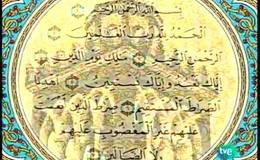 بسم الله الرحمن الرحيم
الحمد لله رب العلمين
الرحمن الرحيم ملك يوم الدين
إياك نعبد وإياك نستعين اهدنا
الصرط المستقيم صرط الذين أنعمت
عليهم غير المغضوب عليهم
ولا الضالين
tve